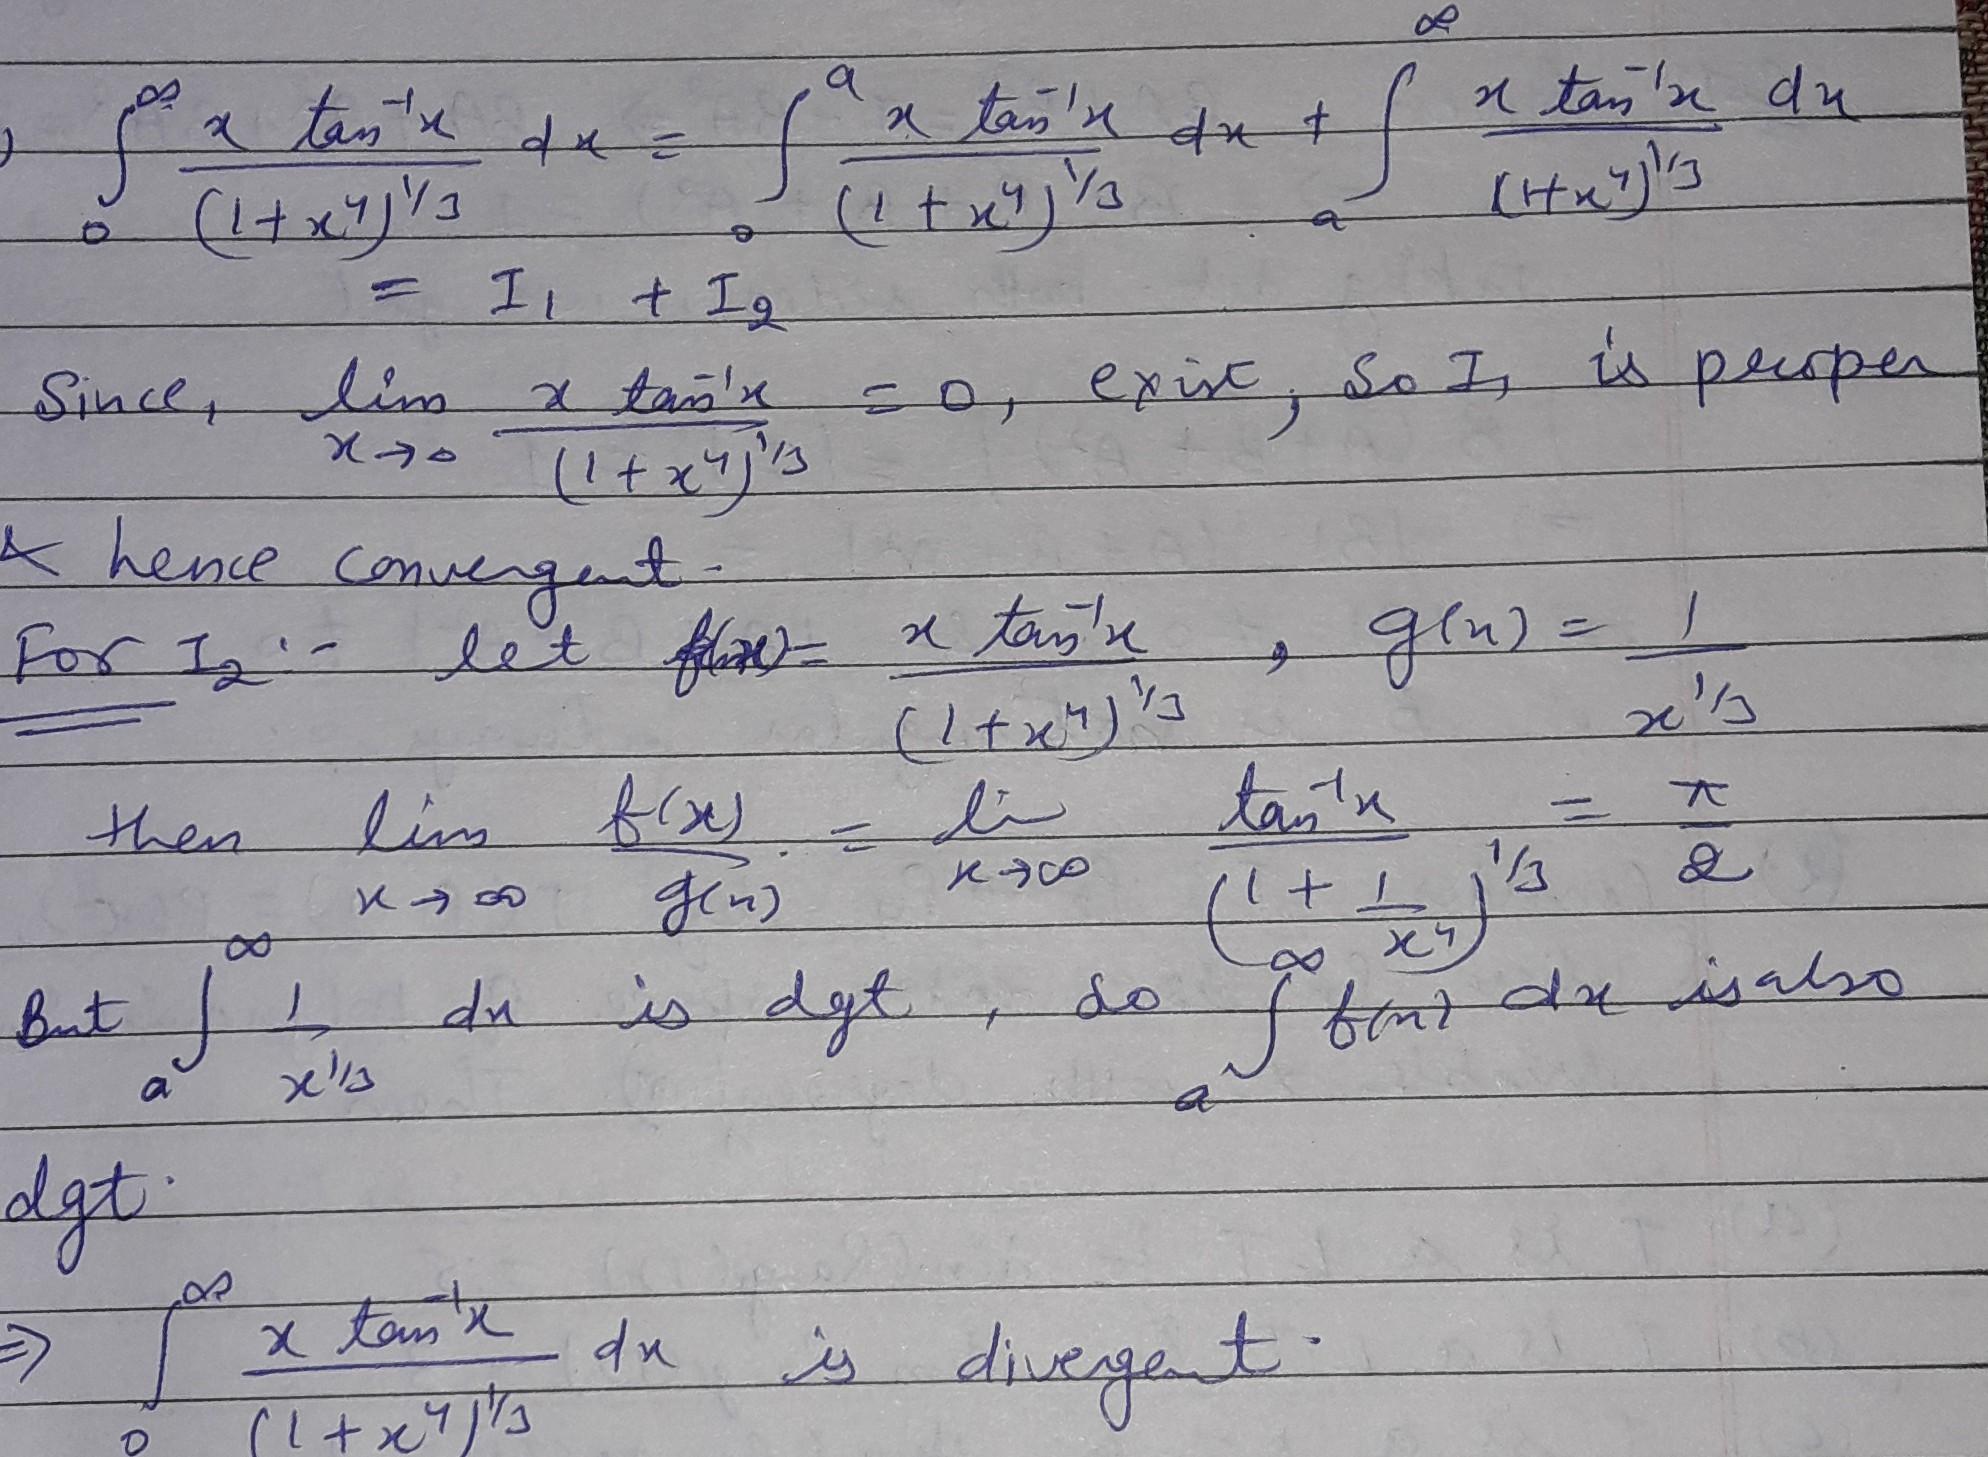 ∫₀^∞ x tan⁻¹x / (1+x⁴)^1/3 dx = ∫₀^a x tan⁻¹x / (1+x⁴)^1/3 dx + ∫ₐ^∞ x tan⁻¹x / (1+x⁴)^1/3 dx
= I₁ + I₂
Since, lim x→0 x tan⁻¹x / (1+x⁴)^1/3 = 0, exist, So I₁ is proper
& hence convergent.
For I₂ :- let f(x) = x tan⁻¹x / (1+x⁴)^1/3 , g(x) = 1 / x^1/3
then lim x→∞ f(x) / g(x) = li x→∞ tan⁻¹x / (1 + 1/x⁴)^1/3 = π/2
But ∫ₐ^∞ 1 / x^1/3 dx is dgt, so ∫ₐ^∞ f(x) dx is also
dgt.
⇒ ∫₀^∞ x tan⁻¹x / (1+x⁴)^1/3 dx is divergent.